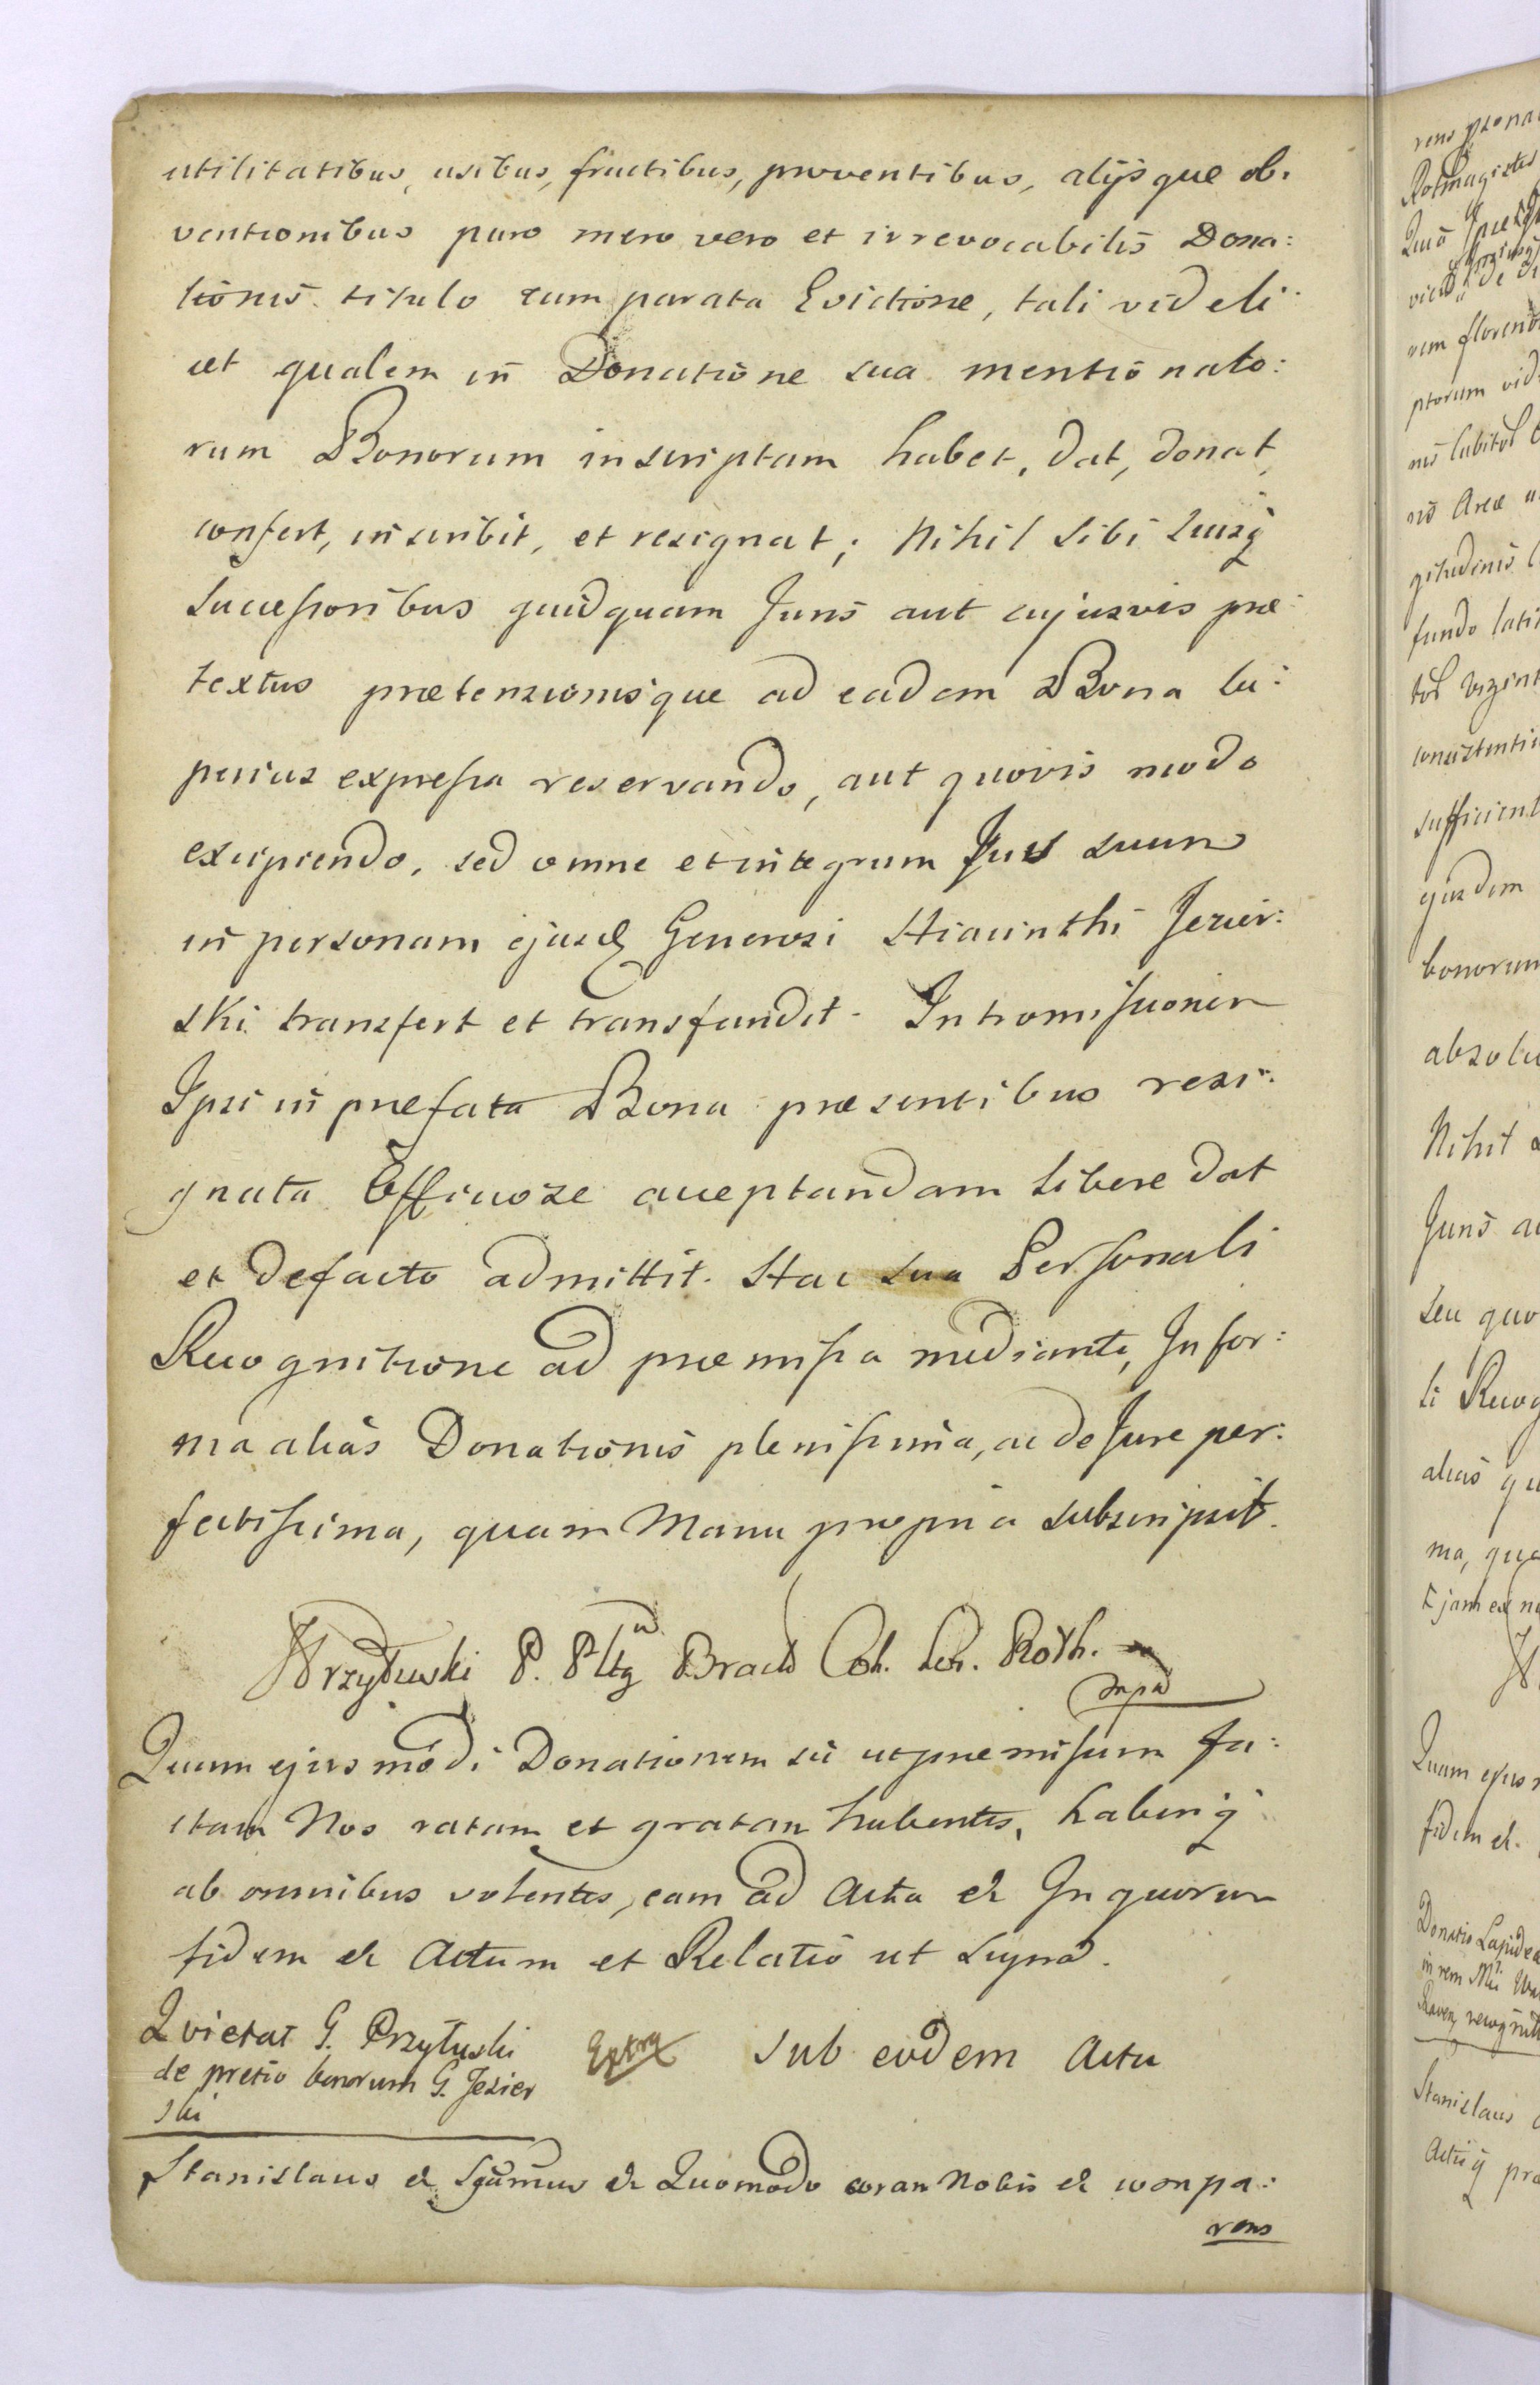 utilitatibus, usibus, fructibus, proventibus, alijsque ob:
ventionibus puro mero vero et irrevocabilis Dona:
tionis titulo cum parata Evictione, tali videli:
cet qualem in Donatione sua mentionato:
rum Bonorum inscriptam habet, dat, donat,
confert, inscribit, et resignat; Nihil sibi suisq
Successoribus quidquam Juris aut cujusvis præ:
textus prætensionisque ad eadem Bona su:
perius expressa reservando, aut quovis modo
excipiendo, sed omne et integrum Jus suum
in personam ejusd Generosi Hiacinthi Jezier:
ski transfert et transfundit. Intromissionem
Ipsi in præfata Bona præsentibus resi:
gnata Officiose acceptandam libere dat
et defacto admittit. Hac sua Personali
Recognitione ad præmissa mediante, In for:
ma alias Donationis plenissima, ac de Jure per:
fectissima, quam Manu propria subscripsit.
Przyłuski P. Pltg Bracł Coh. Roth.
mpa
Quam ejusmodi Donationem sic utpræmissum fa:
ctam Nos ratam et gratam habentes, haberiq
ab omnibus volentes, eam ad Acta et In quorum
fidem et Actum et Relatio ut supra.
Quietat G. Przyłuski
de pretio bonorum G. Jezier
ski
Extra
Sub eodem Actu
Stanislaus et Sgumus et Quomodo coram Nobis et compa:
rens
rens
Rotmagister
Quia
vicid de
rem floreno
ptorum vid
nis Areæ
gitudinis
fundo lati
consistenti
sufficient
ejusdem
bonorum
absolu
Nihil
Juris au
seu quo
li Recog
alias qu
ma, qua
Quam ejus
fidem et.
Donatio Lapideæ
in rem
Stanislaus
Actuq pra